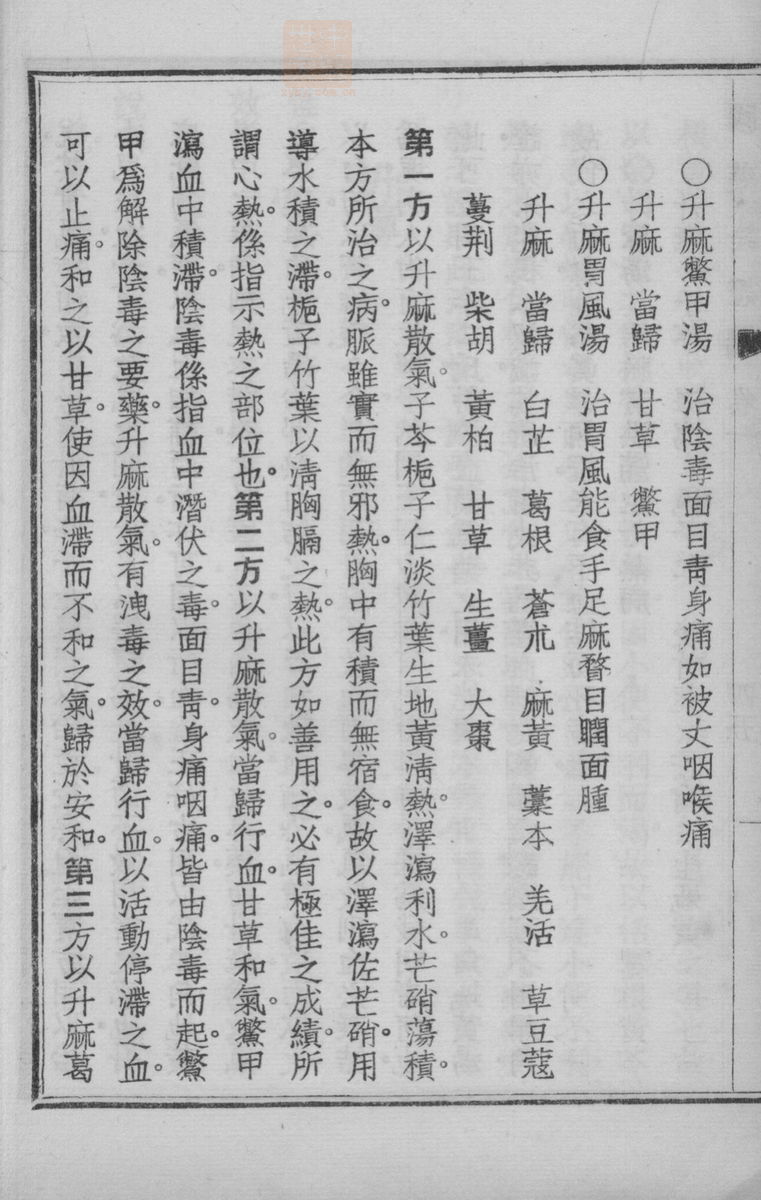 〇升麻鱉甲湯　治陰毒面目靑身痛如被丈咽喉痛
升麻　當歸　甘草　鱉甲
〇升麻胃風湯　治胃風能食手足麻瞀目瞤面腫
升麻　當歸　白芷　葛根　蒼朮　麻黃　藁本　羌活　草豆蔻
蔓荆　柴胡　黃柏　甘草　生薑　大棗
第一方以升麻散氣。子芩梔子仁淡竹葉生地黃淸熱。澤瀉利水。芒硝蕩積。
本方所治之病。脈雖實而無邪熱。胸中有積而無宿食。故以澤瀉佐芒硝。用
導水積之滯。梔子竹葉以淸胸膈之熱。此方如善用之。必有極佳之成績。所
謂心熱。係指示熱之部位也。第二方以升麻散氣。當歸行血。甘草和氣。鱉甲
瀉血中積滯。陰毒係指血中潛伏之毒。面目靑。身痛咽痛。皆由陰毒而起。鱉
甲爲解除陰毒之要藥。升麻散氣。有洩毒之效。當歸行血。以活動停滯之血。
可以止痛。和之以甘草。使因血滯而不和之氣。歸於安和。第三方以升麻葛